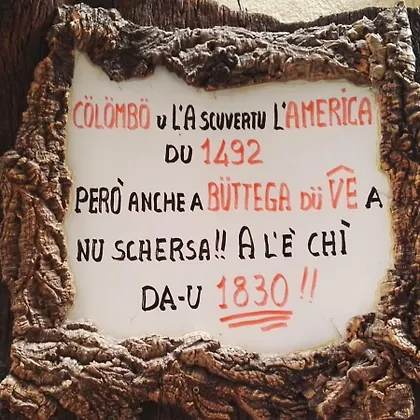 CÖLÖMBÖ U L'A SCUVERTU L'AMERICA
DU 1492
PERÒ ANCHE A BÜTTEGA DÜ VÊ A
NU SCHERSA!! A L'È CHÌ
DA-U 1830!!